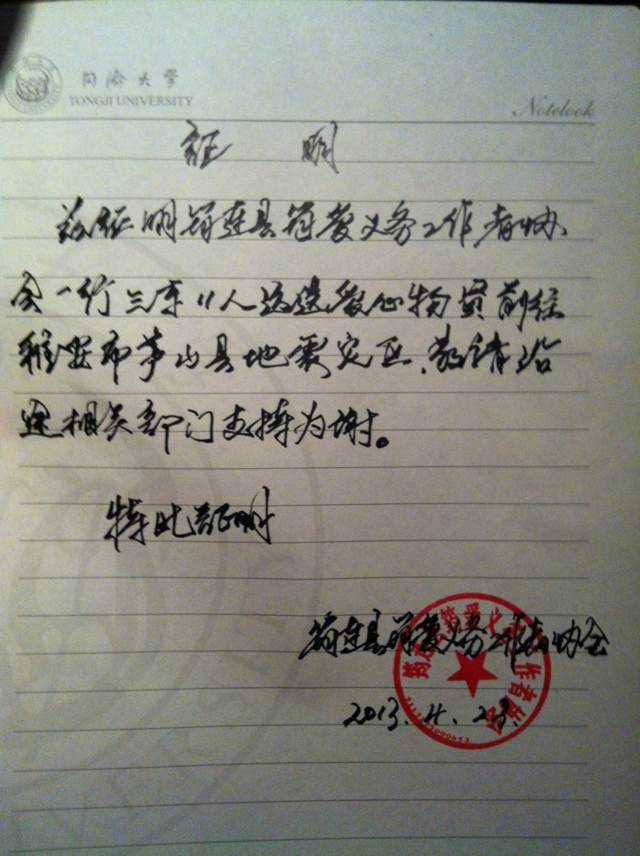 同济大学
TONGJI UNIVERSITY
Notebook
证 明
兹证明筠连县筠爱义务工作者协
会一行三车11人运送爱心物资前往
雅安市芦山县地震灾区,敬请沿
途相关部门支持为谢。
特此证明
筠连县筠爱义务工作者协会
2013.4.23.